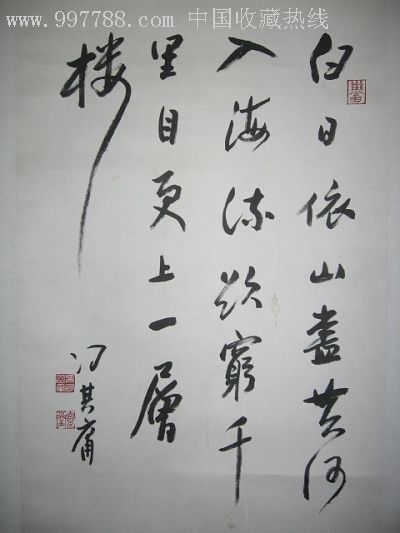 www.997788.com 中国收藏热线
白日依山盡黄河
入海流欲窮千
里目更上一層
楼
冯其庸